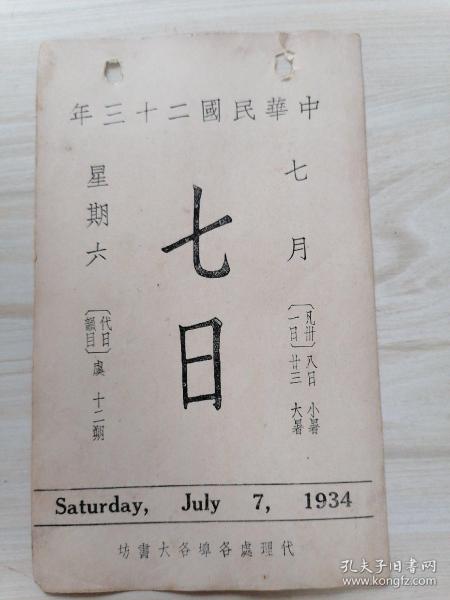 中華民國二十三年
七月
凡卅一日
八日小暑
廿三大暑
七日
星期六
代日韻目
虞 十二期
Saturday, July 7, 1934
代理處各埠各大書坊
孔夫子旧书网
www.kongfz.com